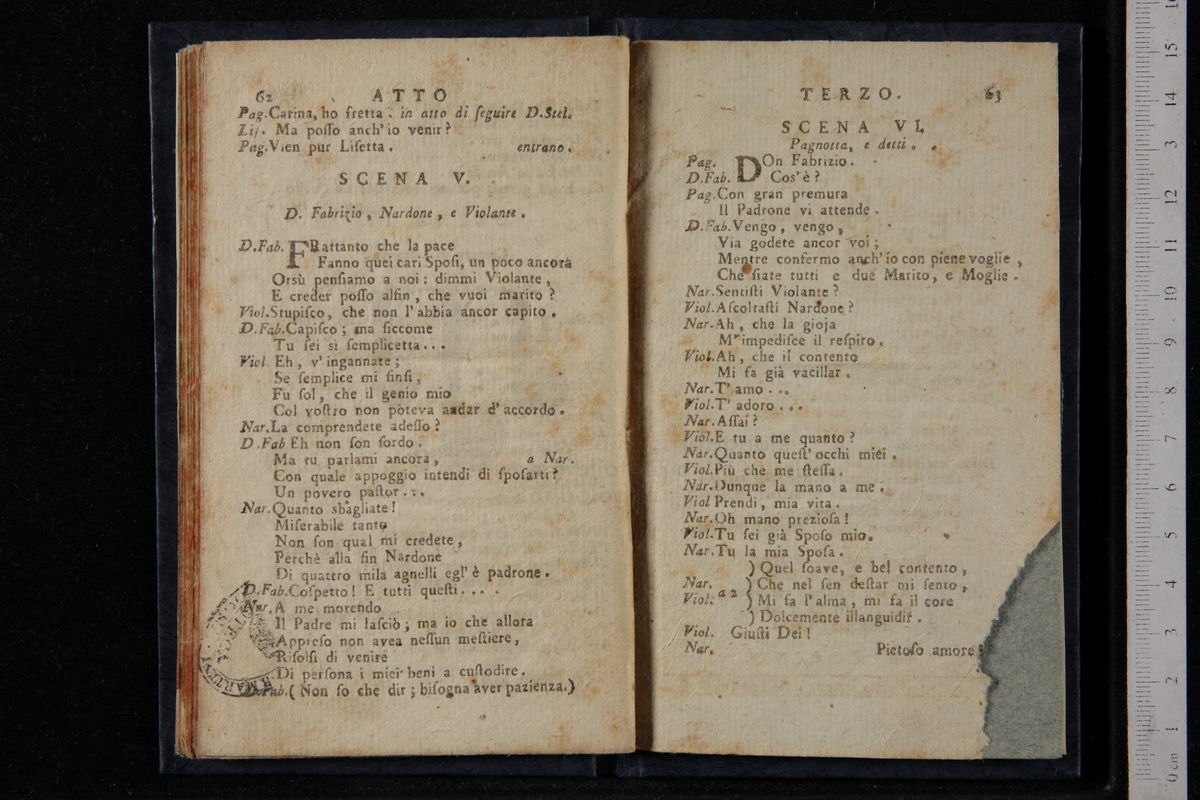 62 ATTO
Pag. Carina, ho fretta. in atto di ſeguire D.Stel.
Liſ. Ma poſſo anch'io venir?
Pag. Vien pur Liſetta. entrano.
SCENA V.
D. Fabrizio, Nardone, e Violante.
D.Fab. FRattanto che la pace
Fanno quei cari Spoſi, un poco ancora
Orsù penſiamo a noi: dimmi Violante,
E creder poſſo alfin, che vuoi marito?
Viol. Stupiſco, che non l'abbia ancor capito.
D.Fab. Capiſco; ma ſiccome
Tu ſei sì ſemplicetta...
Viol. Eh, v'ingannate;
Se ſemplice mi finſi,
Fu ſol, che il genio mio
Col voſtro non poteva andar d'accordo.
Nar. La comprendete adeſſo?
D.Fab. Eh non ſon ſordo.
Ma tu parlami ancora, a Nar.
Con quale appoggio intendi di ſpoſarti?
Un povero paſtor...
Nar. Quanto sbagliate!
Miſerabile tanto
Non ſon qual mi credete,
Perchè alla fin Nardone
Di quattro mila agnelli egl'è padrone.
D.Fab. Coſpetto! E tutti queſti....
Nar. A me morendo
Il Padre mi laſciò; ma io che allora
Appreſo non avea neſſun meſtiere,
Riſolſi di venire
Di perſona i miei beni a cuſtodire.
D.Fab. (Non ſo che dir; biſogna aver pazienza.)
TERZO. 63
SCENA VI.
Pagnotta, e detti.
Pag. DOn Fabrizio.
D.Fab. Cos'è?
Pag. Con gran premura
Il Padrone vi attende.
D.Fab. Vengo, vengo,
Via godete ancor voi;
Mentre confermo anch'io con piene voglie,
Che ſiate tutti e due Marito, e Moglie.
Nar. Sentiſti Violante?
Viol. Aſcoltaſti Nardone?
Nar. Ah, che la gioja
M'impediſce il reſpiro.
Viol. Ah, che il contento
Mi fa già vacillar.
Nar. T'amo...
Viol. T'adoro...
Nar. Aſſai?
Viol. E tu a me quanto?
Nar. Quanto queſt'occhi miei.
Viol. Più che me ſteſſa.
Nar. Dunque la mano a me.
Viol Prendi, mia vita.
Nar. Oh mano prezioſa!
Viol. Tu ſei già Spoſo mio.
Nar. Tu la mia Spoſa.
) Quel ſoave, e bel contento,
Nar. ) Che nel ſen deſtar mi ſento,
Viol. a 2 ) Mi fa l'alma, mi fa il core
) Dolcemente illanguidir.
Viol. Giuſti Dei!
Nar. Pietoſo amore
0 cm 1 2 3 4 5 6 7 8 9 10 11 12 13 14 15